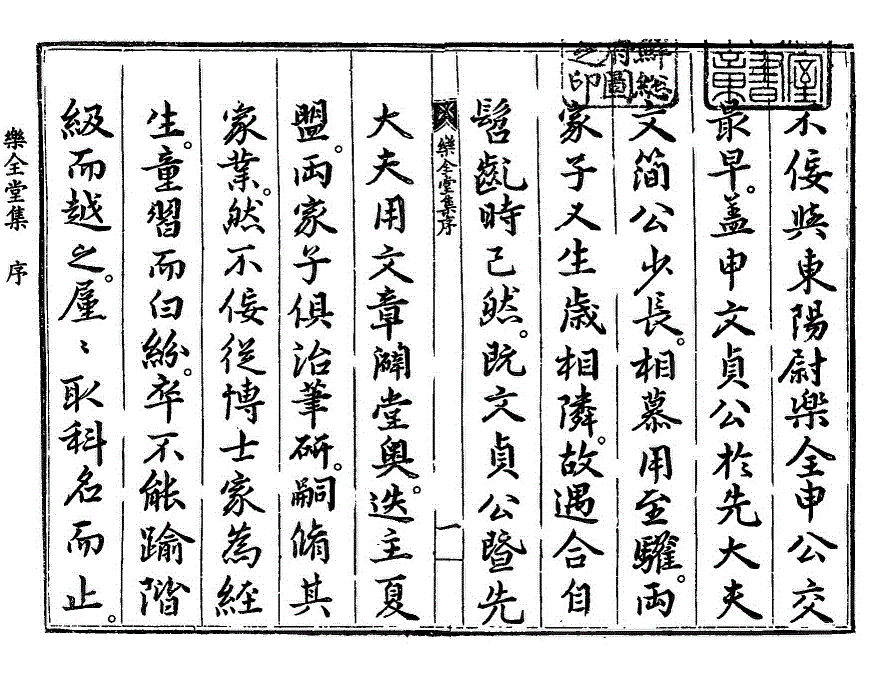 不佞與東陽尉樂全申公交
最早。盖申文貞公於先大夫
文簡公少長。相慕用至驩。兩
家子又生歲相隣。故遇合自
髫齔時已然。旣文貞公曁先
樂全堂集序
一
大夫。用文章闢堂奧。迭主夏
盟。兩家子俱治筆硏。嗣脩其
家業。然不佞從博士家爲經
生。童習而白紛。卒不能踰階
級而越之。屢〻取科名而止。
樂全堂集 序